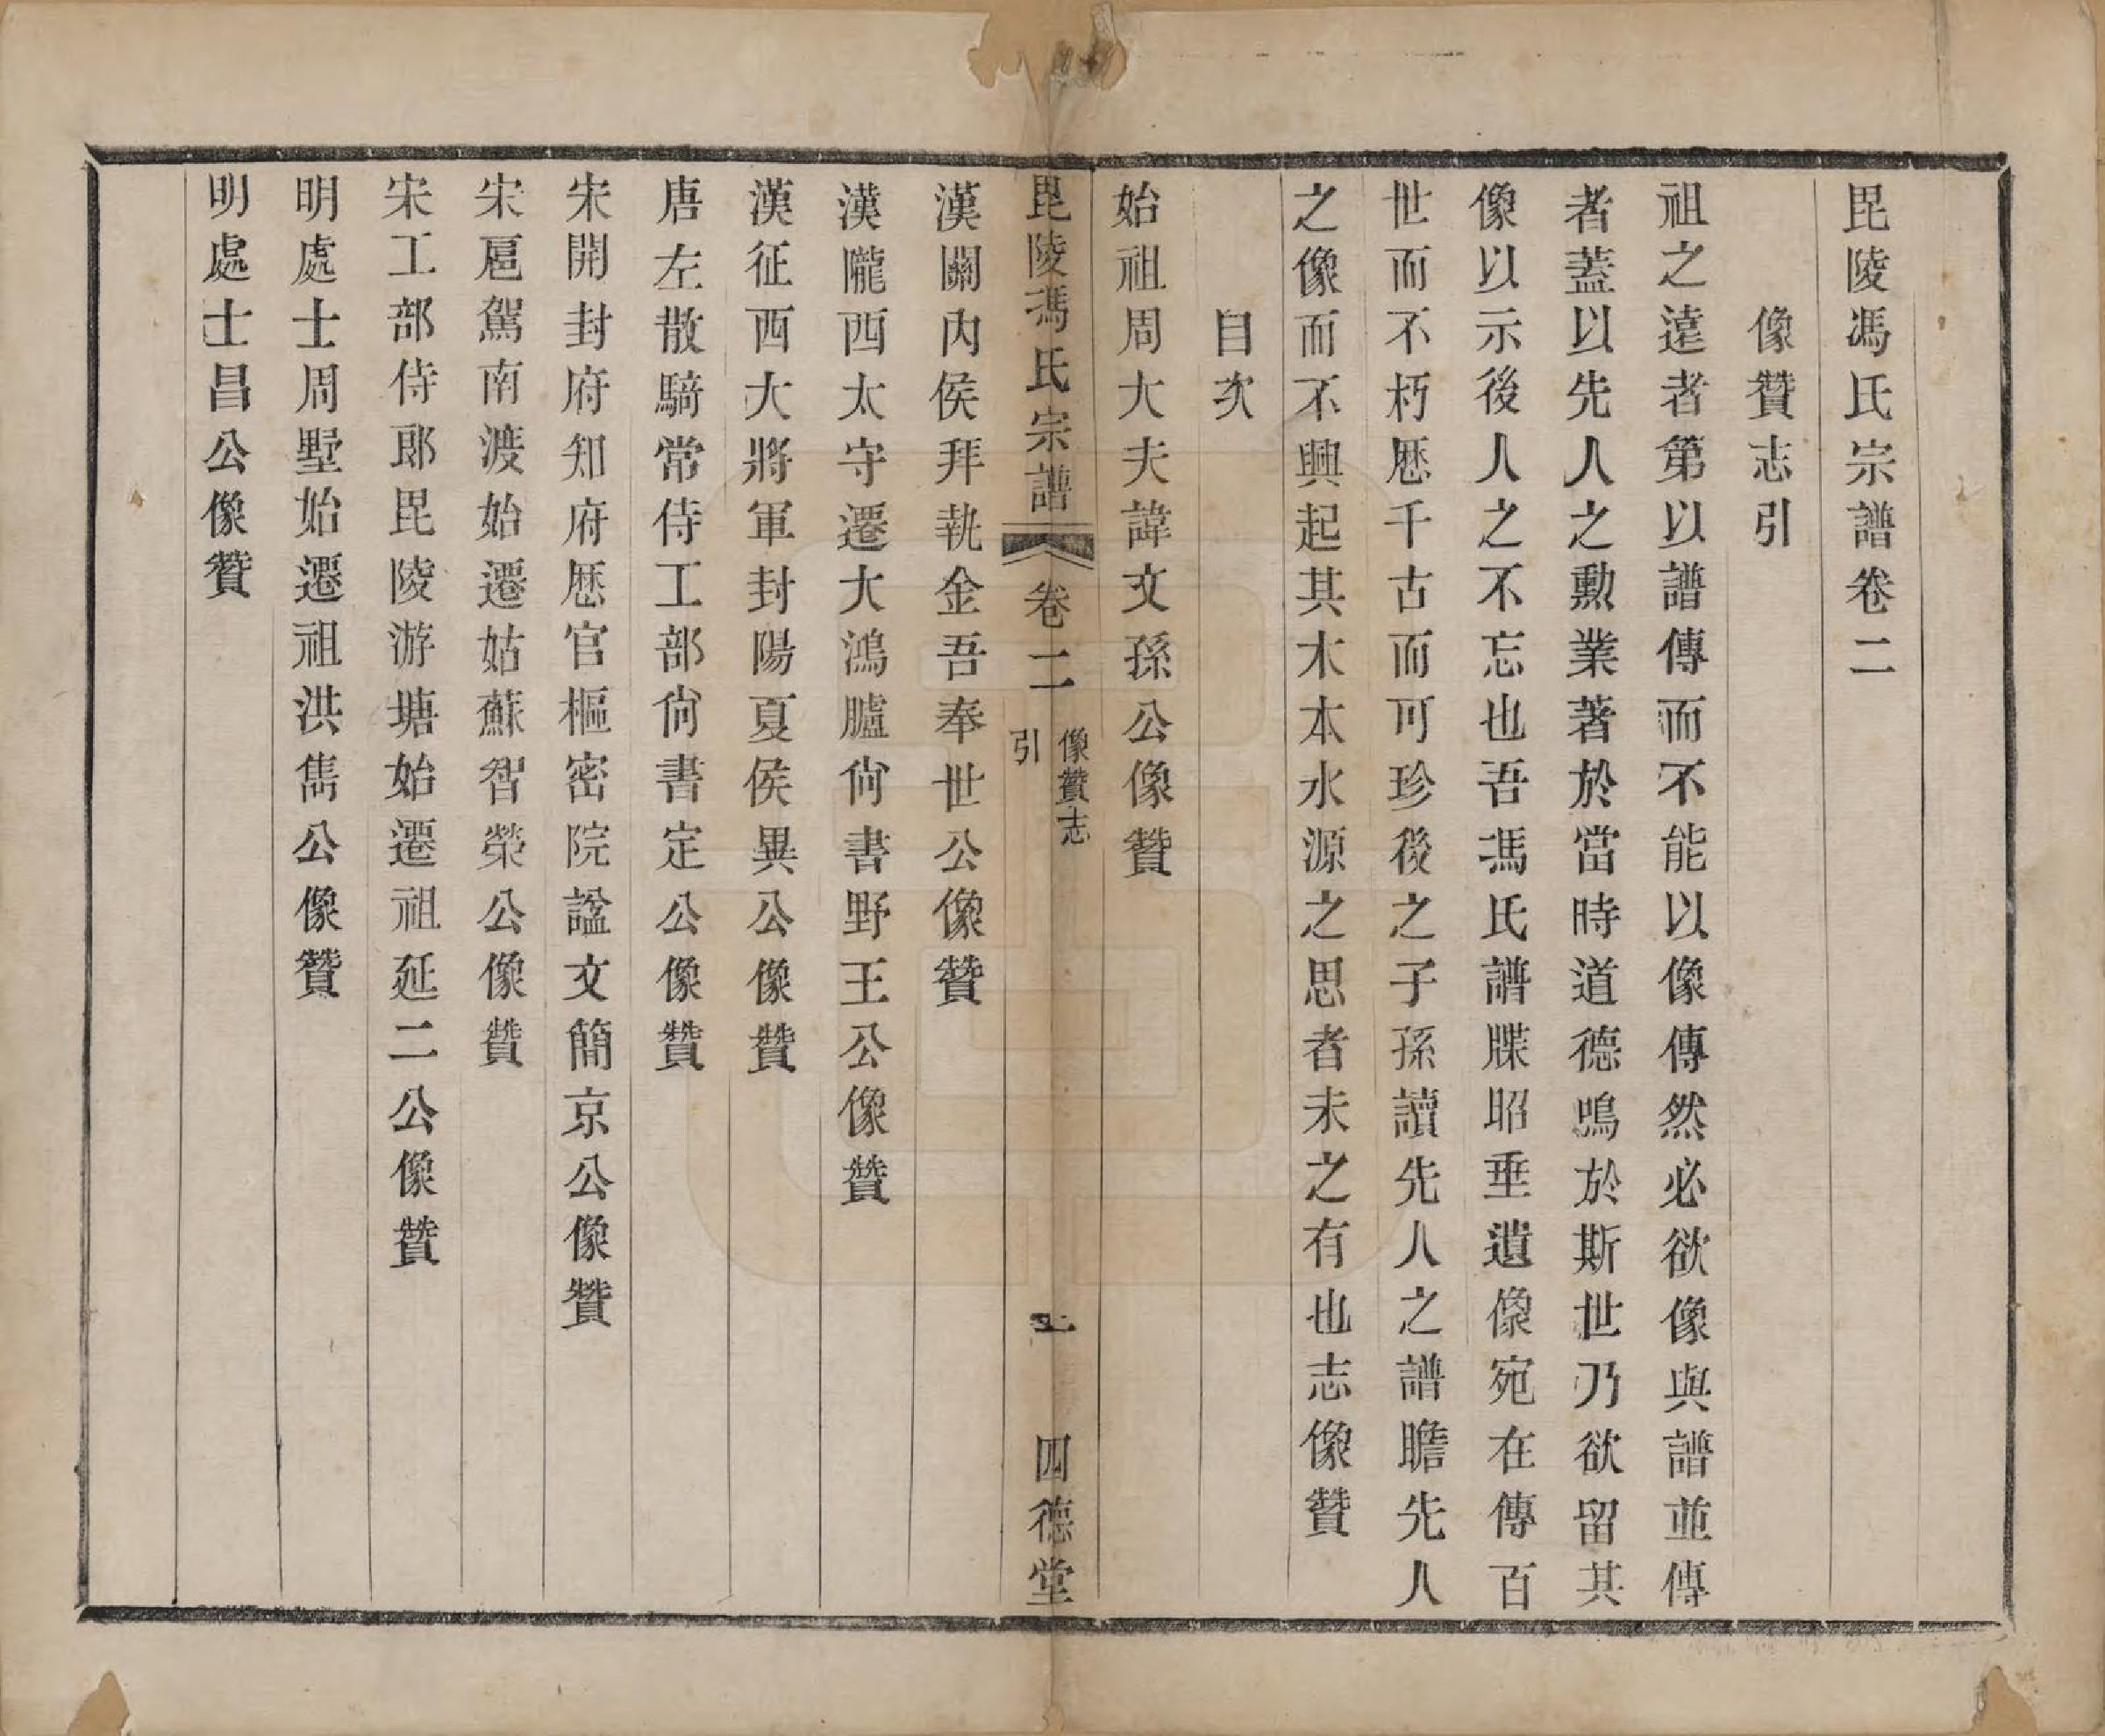 毘陵馮氏宗譜卷二
像贊志引
祖之遠者第以譜傳而不能以像傳然必欲像與譜並傳
者蓋以先人之勳業著於當時道德鳴於斯世乃欲留其
像以示後人之不忘也吾馮氏譜牒昭垂遺像宛在傳百
世而不朽歷千古而可珍後之子孫讀先人之譜瞻先人
之像而不興起其木本水源之思者未之有也志像贊
目次
始祖周大夫諱文孫公像贊
毘陵馮氏宗譜 卷二 像贊志引 一 四德堂
漢關內侯拜執金吾奉世公像贊
漢隴西太守遷大鴻臚尙書野王公像贊
漢征西大將軍封陽夏侯異公像贊
唐左散騎常侍工部尙書定公像贊
宋開封府知府歷官樞密院諡文簡京公像贊
宋扈駕南渡始遷姑蘇智榮公像贊
宋工部侍郎毘陵游塘始遷祖延二公像贊
明處士周墅始遷祖洪雋公像贊
明處士昌公像贊